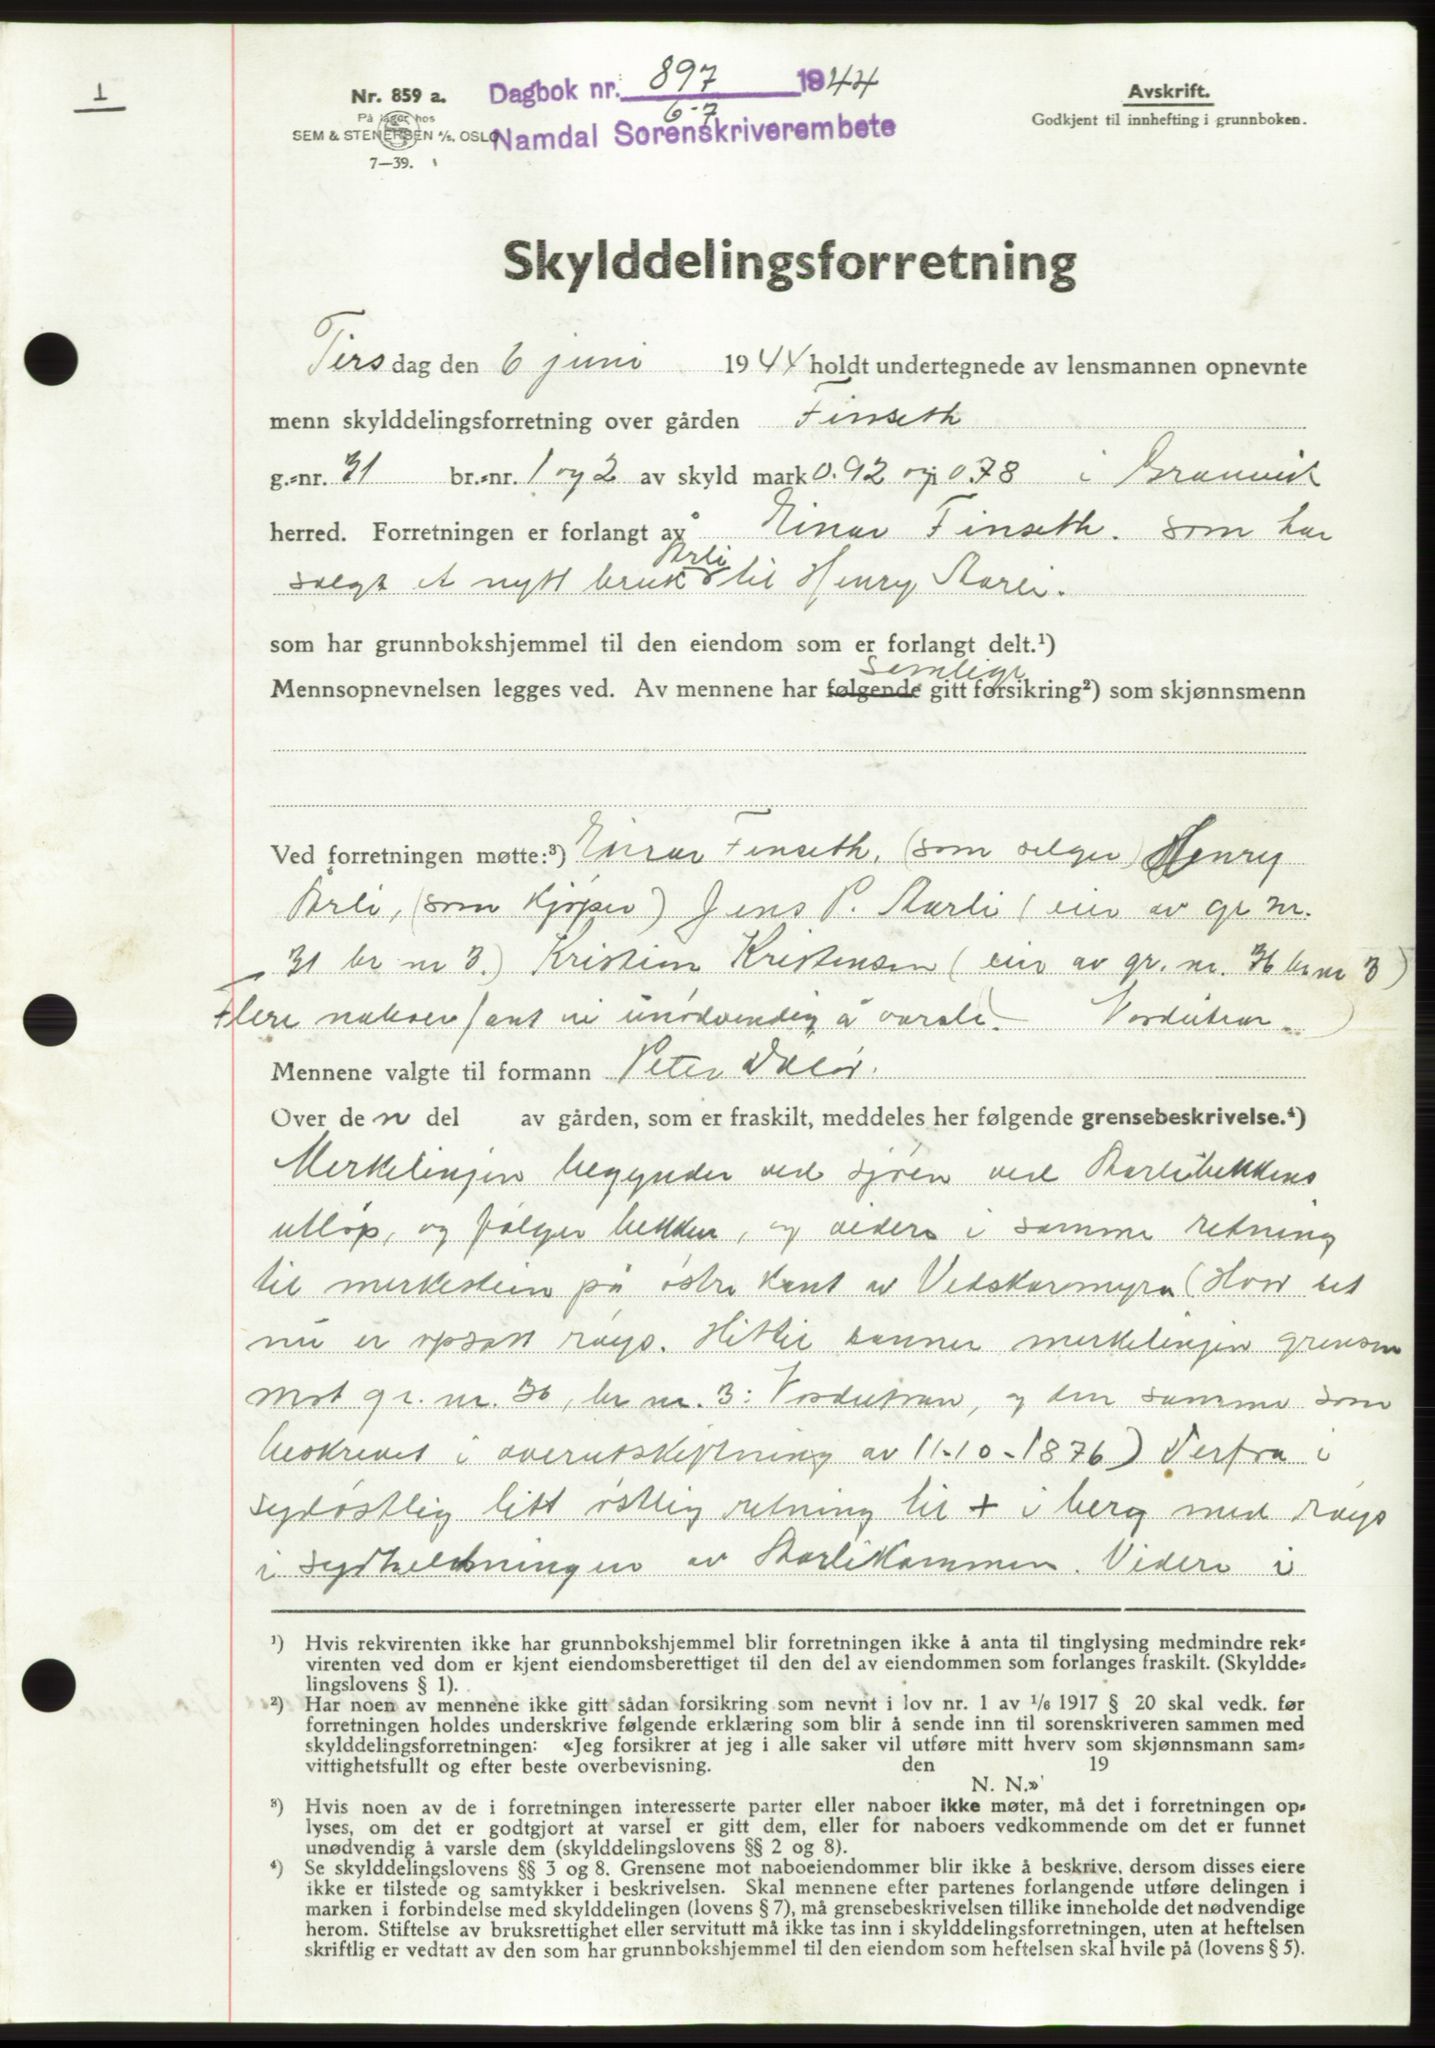 1
Nr. 859 a.
På lager hos
SEM & STENERSEN A/S, OSLO
7—39.
Dagbok nr. 897 1944
6-7
Namdal Sorenskriverembete
Avskrift.
Godkjent til innhefting i grunnboken.
Skylddelingsforretning
Tirsdag den 6 juni 1944 holdt undertegnede av lensmannen opnevnte
menn skylddelingsforretning over gården Finseth
g.-nr. 31 br.-nr. 1 og 2 av skyld mark 0.92 og 0.78 i
herred. Forretningen er forlangt av Einar Finseth. som har
solgt et nytt bruk Årli til Henry Aarli.
som har grunnbokshjemmel til den eiendom som er forlangt delt.¹)
Mennsopnevnelsen legges ved. Av mennene har følgende samlige gitt forsikring²) som skjønnsmenn
Ved forretningen møtte:³) Einar Finseth, (som selger) Henry
Årli, (som kjøper) Jens P. Aarli (eier av gr nr.
31 br nr 3.) Kristian Kristensen (eier av gr. nr. 36 br nr 3)
Flere naboer fant vi unødvendig å varsle.
Mennene valgte til formann Peter
Over den del av gården, som er fraskilt, meddeles her følgende grensebeskrivelse.⁴)
Merkelinjen begynder ved sjøen ved Aarlibekkens
utløp, og følger bekken, og videre i samme retning
til merkestein på østre kant av Vetskarmyra (Hvor det
nu er opsatt røys. Hittil danner merkelinjen grensen
mot gr. nr. 36, br nr. 3: og den samme som
beskrevet i overutskiftning av 11-10-1876) Derfra i
sydøstlig litt østlig retning til + i berg med røys
i sydheldningen av Aarlikammen. Videre i
¹) Hvis rekvirenten ikke har grunnbokshjemmel blir forretningen ikke å anta til tinglysing medmindre rek-
virenten ved dom er kjent eiendomsberettiget til den del av eiendommen som forlanges fraskilt. (Skyldde-
lingslovens § 1).
²) Har noen av mennene ikke gitt sådan forsikring som nevnt i lov nr. 1 av 1/6 1917 § 20 skal vedk. før
forretningen holdes underskrive følgende erklæring som blir å sende inn til sorenskriveren sammen med
skylddelingsforretningen: «Jeg forsikrer at jeg i alle saker vil utføre mitt hverv som skjønnsmann sam-
vittighetsfullt og efter beste overbevisning. den 19
N. N.»
³) Hvis noen av de i forretningen interesserte parter eller naboer ikke møter, må det i forretningen op-
lyses, om det er godtgjort at varsel er gitt dem, eller for naboers vedkommende om det er funnet
unødvendig å varsle dem (skylddelingslovens §§ 2 og 8).
⁴) Se skylddelingslovens §§ 3 og 8. Grensene mot naboeiendommer blir ikke å beskrive, dersom disses eiere
ikke er tilstede og samtykker i beskrivelsen. Skal mennene efter partenes forlangende utføre delingen i
marken i forbindelse med skylddelingen (lovens § 7), må grensebeskrivelsen tillike inneholde det nødvendige
herom. Stiftelse av bruksrettighet eller servitutt må ikke tas inn i skylddelingsforretningen, uten at heftelsen
skriftlig er vedtatt av den som har grunnbokshjemmel til den eiendom som heftelsen skal hvile på (lovens § 5).